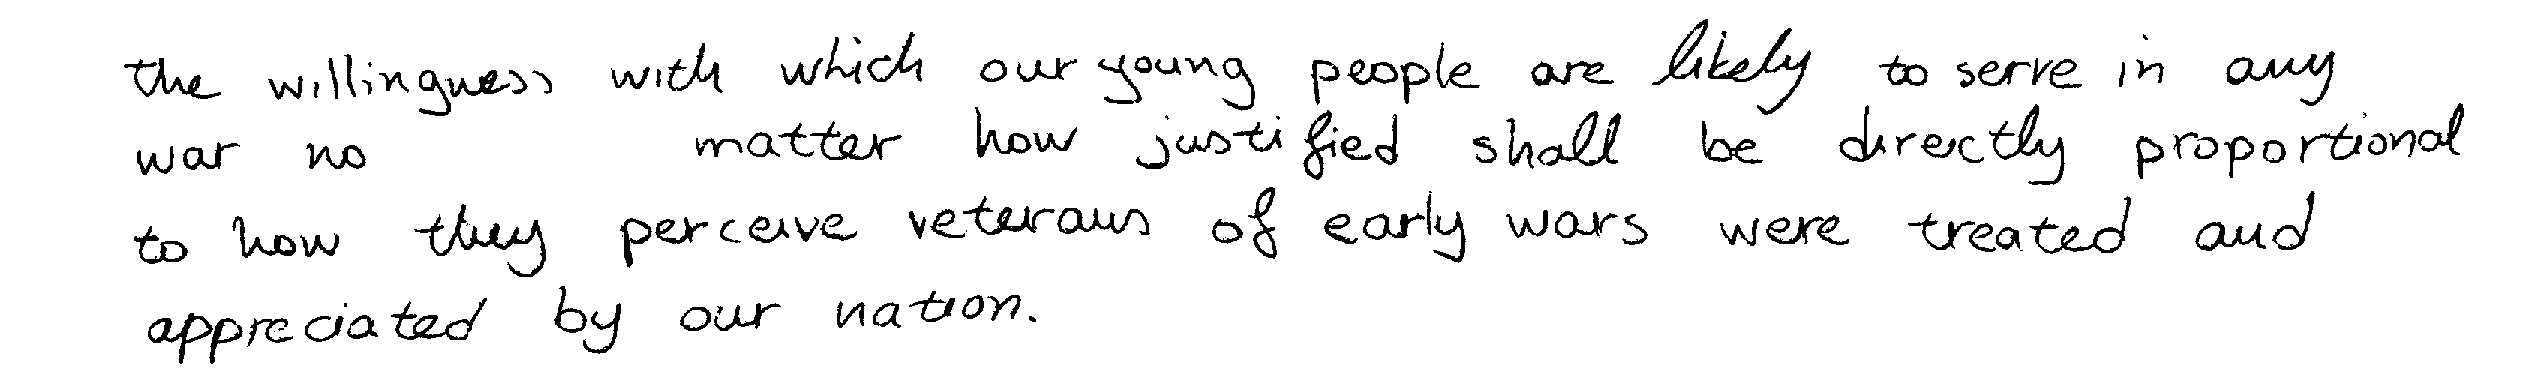 the willingness with which our young people are likely to serve in any
war no matter how justified shall be directly proportional
to how they perceive veterans of early wars were treated and
appreciated by our nation.